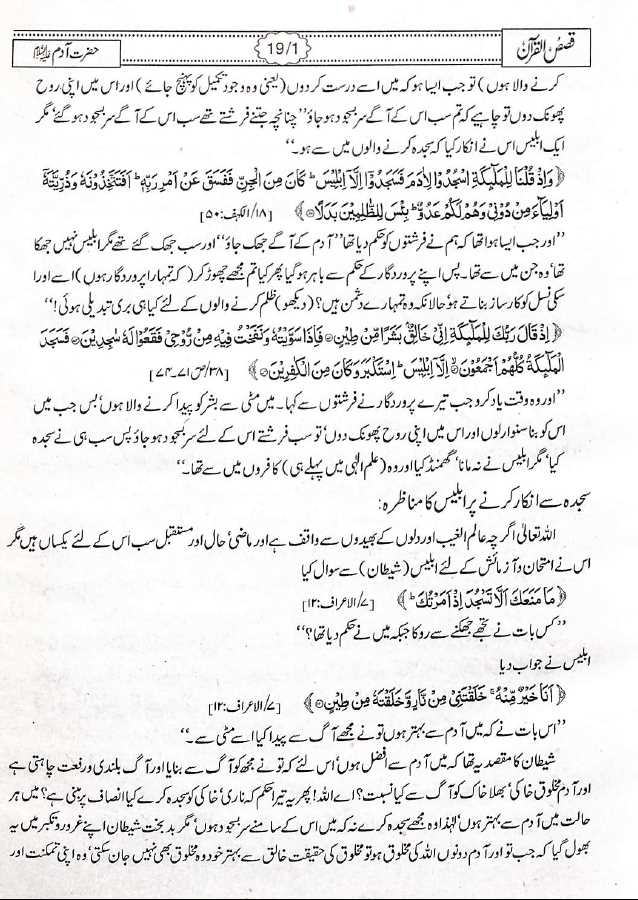 قصص القرآن 19/1 حضرت آدم علیہ السلام
کرنے والا ہوں) تو جب ایسا ہو کہ میں اسے درست کر دوں (یعنی وہ وجود تکمیل کو پہنچ جائے) اور اس میں اپنی روح
پھونک دوں تو چاہیے کہ تم سب اس کے آگے سربسجود ہو جاؤ‘‘ چنانچہ جتنے فرشتے تھے سب اس کے آگے سربسجود ہو گئے‘ مگر
ایک ابلیس اس نے انکار کیا کہ سجدہ کرنے والوں میں سے ہو۔‘‘
﴿وَاِذْ قُلْنَا لِلْمَلٰٓئِكَةِ اسْجُدُوْا لِاٰدَمَ فَسَجَدُوْٓا اِلَّآ اِبْلِيْسَ ؕ كَانَ مِنَ الْجِنِّ فَفَسَقَ عَنْ اَمْرِ رَبِّهٖ ؕ اَفَتَتَّخِذُوْنَهٗ وَذُرِّيَّتَهٗٓ
اَوْلِيَآءَ مِنْ دُوْنِيْ وَهُمْ لَكُمْ عَدُوٌّ ؕ بِئْسَ لِلظّٰلِمِيْنَ بَدَلًا﴾ [۱۸/الکہف:۵۰]
’’اور جب ایسا ہوا تھا کہ ہم نے فرشتوں کو حکم دیا تھا ’’آدم کے آگے جھک جاؤ‘‘ اور سب جھک گئے تھے مگر ابلیس نہیں جھکا
تھا‘ وہ جن میں سے تھا۔ پس اپنے پروردگار کے حکم سے باہر ہو گیا پھر کیا تم مجھے چھوڑ کر (کہ تمہارا پروردگار ہوں) اسے اور ا
سکی نسل کو کارساز بناتے ہو حالانکہ وہ تمہارے دشمن ہیں؟ (دیکھو) ظلم کرنے والوں کے لئے کیا ہی بری تبدیلی ہوئی!‘‘
﴿اِذْ قَالَ رَبُّكَ لِلْمَلٰٓئِكَةِ اِنِّيْ خَالِقٌۢ بَشَرًا مِّنْ طِيْنٍ۞ فَاِذَا سَوَّيْتُهٗ وَنَفَخْتُ فِيْهِ مِنْ رُّوْحِيْ فَقَعُوْا لَهٗ سٰجِدِيْنَ۞ فَسَجَدَ
الْمَلٰٓئِكَةُ كُلُّهُمْ اَجْمَعُوْنَ۞ اِلَّآ اِبْلِيْسَ ؕ اِسْتَكْبَرَ وَكَانَ مِنَ الْكٰفِرِيْنَ۞﴾ [۳۸/ص:۷۱-۷۴]
’’اور وہ وقت یاد کرو جب تیرے پروردگار نے فرشتوں سے کہا۔ میں مٹی سے بشر کو پیدا کرنے والا ہوں‘ بس جب میں
اس کو بنا سنوار لوں اور اس میں اپنی روح پھونک دوں‘ تو سب فرشتے اس کے لئے سربسجود ہو جاؤ پس سب ہی نے سجدہ
کیا‘ مگر ابلیس نے نہ مانا‘ گھمنڈ کیا اور وہ (علم الٰہی میں پہلے ہی) کافروں میں سے تھا۔‘‘
سجدہ سے انکار کرنے پر ابلیس کا مناظرہ:
اللہ تعالیٰ اگرچہ عالم الغیب اور دلوں کے بھیدوں سے واقف ہے اور ماضی‘ حال اور مستقبل سب اس کے لئے یکساں ہیں مگر
اس نے امتحان و آزمائش کے لئے ابلیس (شیطان) سے سوال کیا
﴿مَا مَنَعَكَ اَلَّا تَسْجُدَ اِذْ اَمَرْتُكَ ؕ﴾ [۷/الاعراف:۱۲]
’’کس بات نے تجھے جھکنے سے روکا جبکہ میں نے حکم دیا تھا؟‘‘
ابلیس نے جواب دیا
﴿اَنَا خَيْرٌ مِّنْهُ ۚ خَلَقْتَنِيْ مِنْ نَّارٍ وَّخَلَقْتَهٗ مِنْ طِيْنٍ۞﴾ [۷/الاعراف:۱۲]
’’اس بات نے کہ میں آدم سے بہتر ہوں تو نے مجھے آگ سے پیدا کیا اسے مٹی سے۔‘‘
شیطان کا مقصد یہ تھا کہ میں آدم سے افضل ہوں‘ اس لئے کہ تو نے مجھ کو آگ سے بنایا اور آگ بلندی و رفعت چاہتی ہے
اور آدم مخلوق خاکی‘ بھلا خاک کو آگ سے کیا نسبت؟ اے اللہ! پھر یہ تیرا حکم کہ ناری‘ خاکی کو سجدہ کرے کیا انصاف پر مبنی ہے؟ میں ہر
حالت میں آدم سے بہتر ہوں‘ لہٰذا وہ مجھے سجدہ کرے نہ کہ میں اس کے سامنے سربسجود ہوں‘ مگر بدبخت شیطان اپنے غرور و تکبر میں یہ
بھول گیا کہ جب تو اور آدم دونوں اللہ کی مخلوق ہو تو مخلوق کی حقیقت خالق سے بہتر خود وہ مخلوق بھی نہیں جان سکتی‘ وہ اپنی تمکنت اور